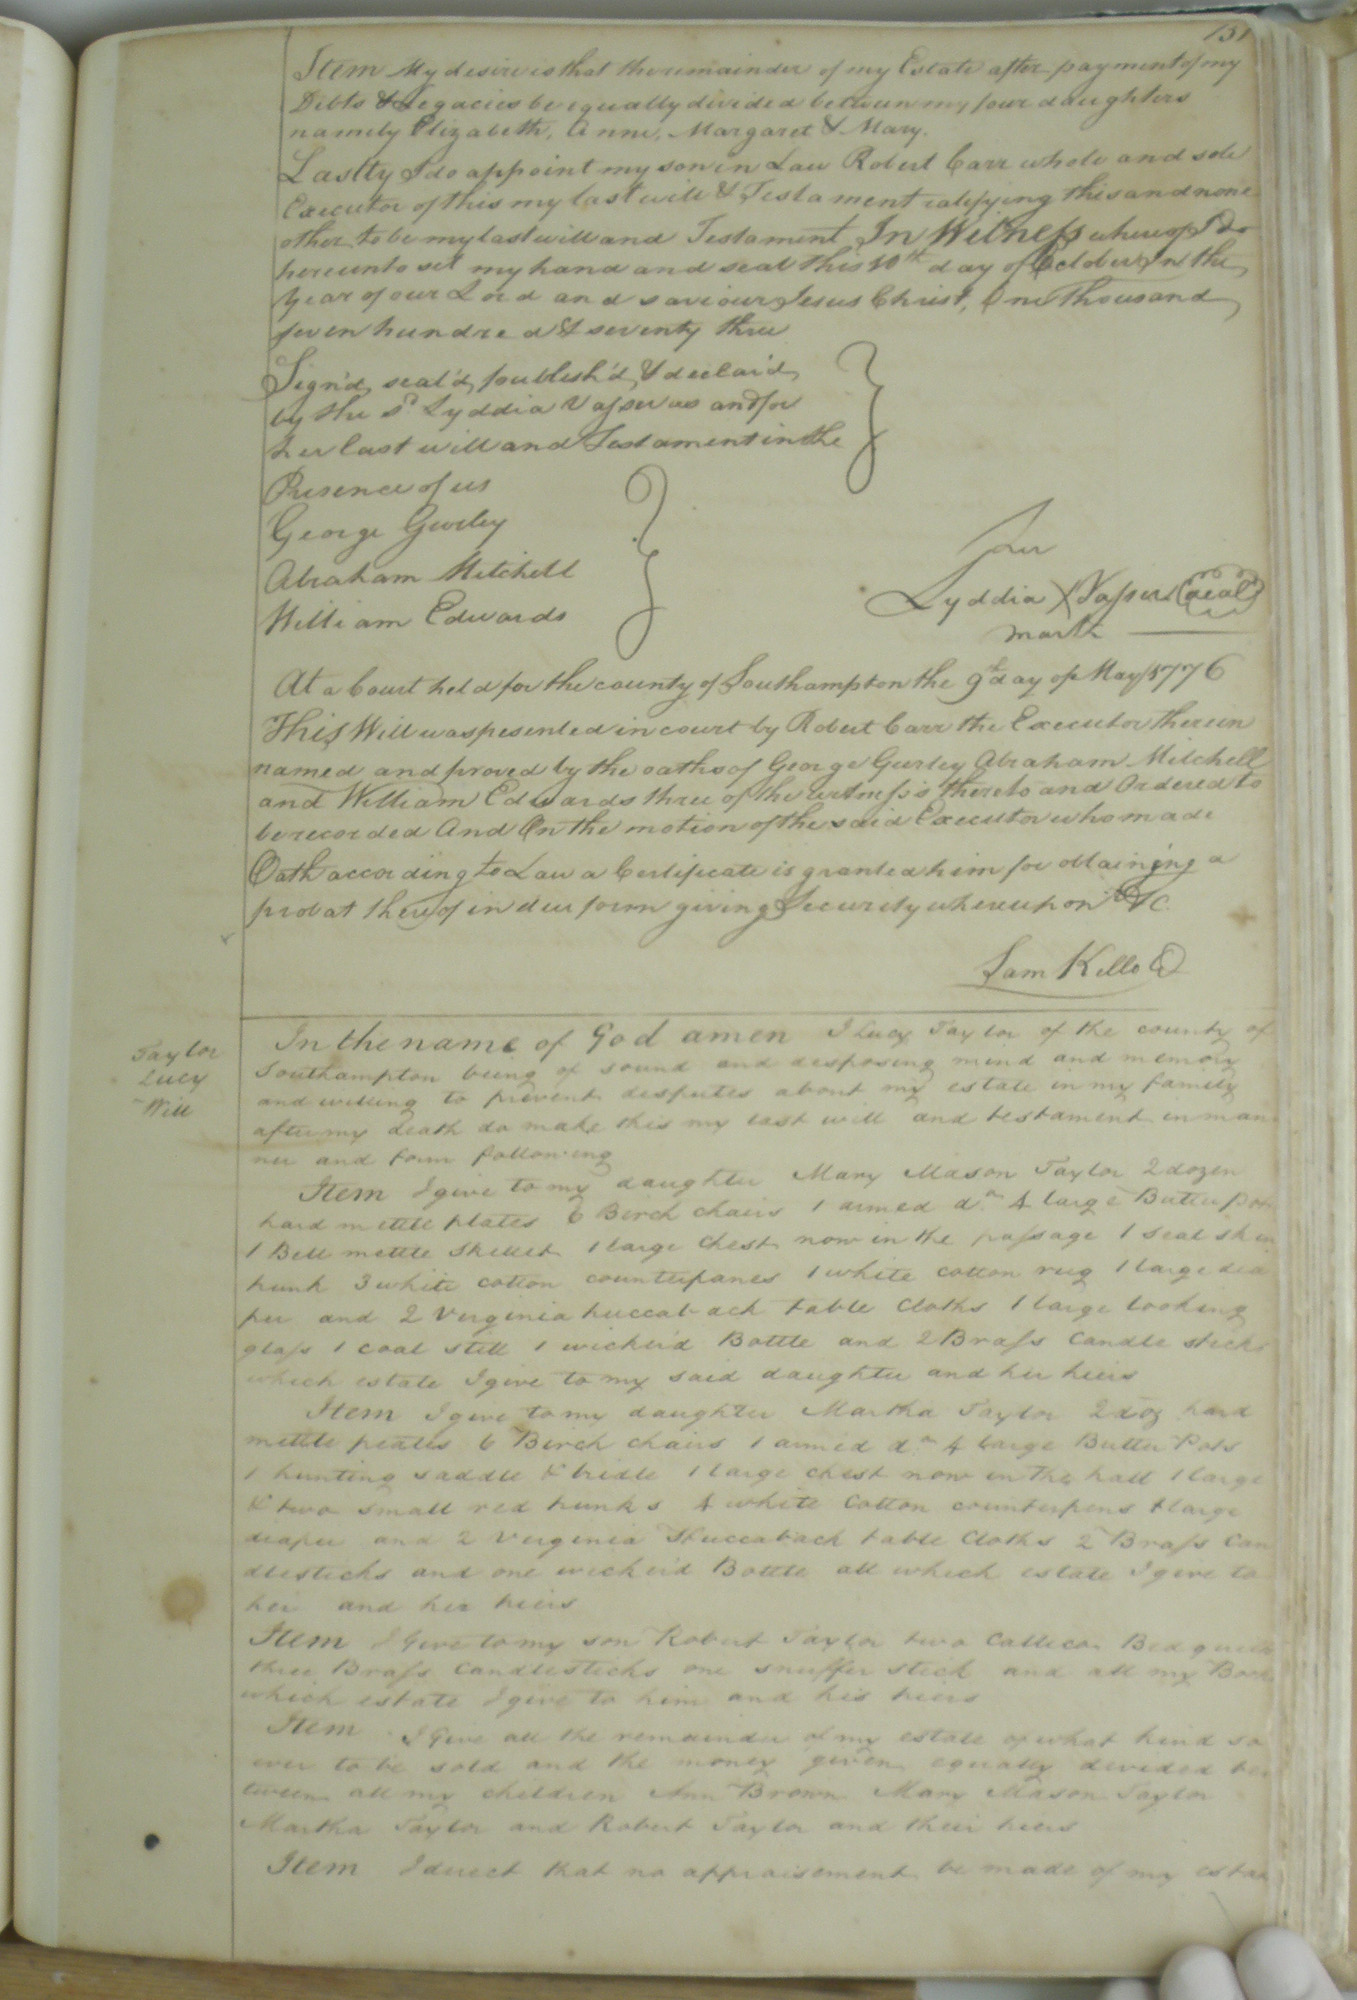 131
Item My desire is that the remainder of my Estate after payment of my
Debts & Legacies be equally divided between my four daughters
namely Elizabeth, Anne, Margaret & Mary.
Lastly I do appoint my son in Law Robert Carr whole and sole
Executor of this my last will & Testament ratifying this and none
other to be my last will and Testament In Witness whereof I Do
hereunto set my hand and seal this 10th day of October in the
Year of our Lord and saviour Jesus Christ, One Thousand
seven hundred & seventy three
Sign'd, seal'd, publish'd, & declair'd,
by the sd Lyddia Vasser as and for
her last will and Testament in the
Presence of us
George Gurley
Abraham Mitchell
William Edwards
her
Lyddia X Vasser (seal)
mark
At a Court held for the county of Southampton the 9th day of May 1776
This Will was presented in court by Robert Carr the Executor therein
named and proved by the oaths of George Gurley Abraham Mitchell
and William Edwards three of the witness's thereto and Ordered to
be recorded And On the motion of the said Executor who made
Oath according to Law a Certificate is granted him for obtaining a
probat thereof in due form giving Security whereupon &c.
Sam Kello
Taylor
Lucy
Will
In the name of God amen I Lucy Taylor of the county of
Southampton being of sound and desposing mind and memory
and willing to prevent desputes about my estate in my family
after my death do make this my last will and testament in man
ner and form following
Item I give to my daughter Mary Mason Taylor 2 dozen
hard mettle plates 6 Birch chairs 1 armed do 4 large Butter pots
1 Bell mettle skillet 1 large Chest now in the passage 1 seal skin
trunk 3 white cotton counterpanes 1 white cotton rug 1 large dia
per and 2 Verginia huccaback table Cloths 1 large looking
glass 1 coal still 1 wicker'd Bottle and 2 Brass Candle sticks
which estate I give to my said daughter and her heirs
Item I give to my daughter Martha Taylor 2 doz hard
mettle plates 6 Birch chairs 1 armed do 4 large Butter Pots
1 hunting saddle & bridle 1 large chest now in the hall 1 large
& two small red trunks 4 white Cotton counterpens 1 large
diaper and 2 Verginia Huccaback table Cloths 2 Brass Can
dlesticks and one wicker'd Bottle all which estate I give to
her and her heirs
Item I Give to my son Robert Taylor two Callico Bed
three Brass Candlesticks one snuffer stick and all my
which estate I give to him and his heirs
Item I Give all the remainder of my estate of what kind so
ever to be sold and the money given equally devided be
tween all my children Ann Brown Mary Mason Taylor
Martha Taylor and Robert Taylor and their heirs
Item I derect that no appraisement be made of my estate